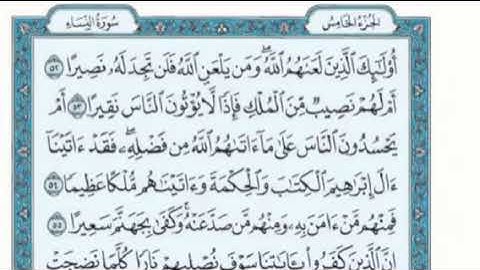 سُورَةُ النِّسَاءِ
الجُزءُ الخَامِسُ
أُوْلَٰٓئِكَ ٱلَّذِينَ لَعَنَهُمُ ٱللَّهُۖ وَمَن يَلْعَنِ ٱللَّهُ فَلَن تَجِدَ لَهُۥ نَصِيرًا ٥٢
أَمْ لَهُمْ نَصِيبٌ مِّنَ ٱلْمُلْكِ فَإِذًا لَّا يُؤْتُونَ ٱلنَّاسَ نَقِيرًا ٥٣ أَمْ
يَحْسُدُونَ ٱلنَّاسَ عَلَىٰ مَآ ءَاتَىٰهُمُ ٱللَّهُ مِن فَضْلِهِۦۖ فَقَدْ ءَاتَيْنَآ
ءَالَ إِبْرَٰهِيمَ ٱلْكِتَٰبَ وَٱلْحِكْمَةَ وَءَاتَيْنَٰهُم مُّلْكًا عَظِيمًا ٥٤
فَمِنْهُم مَّنْ ءَامَنَ بِهِۦ وَمِنْهُم مَّن صَدَّ عَنْهُۚ وَكَفَىٰ بِجَهَنَّمَ سَعِيرًا ٥٥
إِنَّ ٱلَّذِينَ كَفَرُوا۟ بِـَٔايَٰتِنَا سَوْفَ نُصْلِيهِمْ نَارًا كُلَّمَا نَضِجَتْ